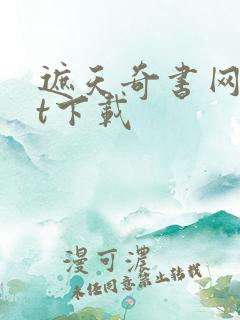 遮天奇书网
t下载
漫可濃
未经同意禁止转载